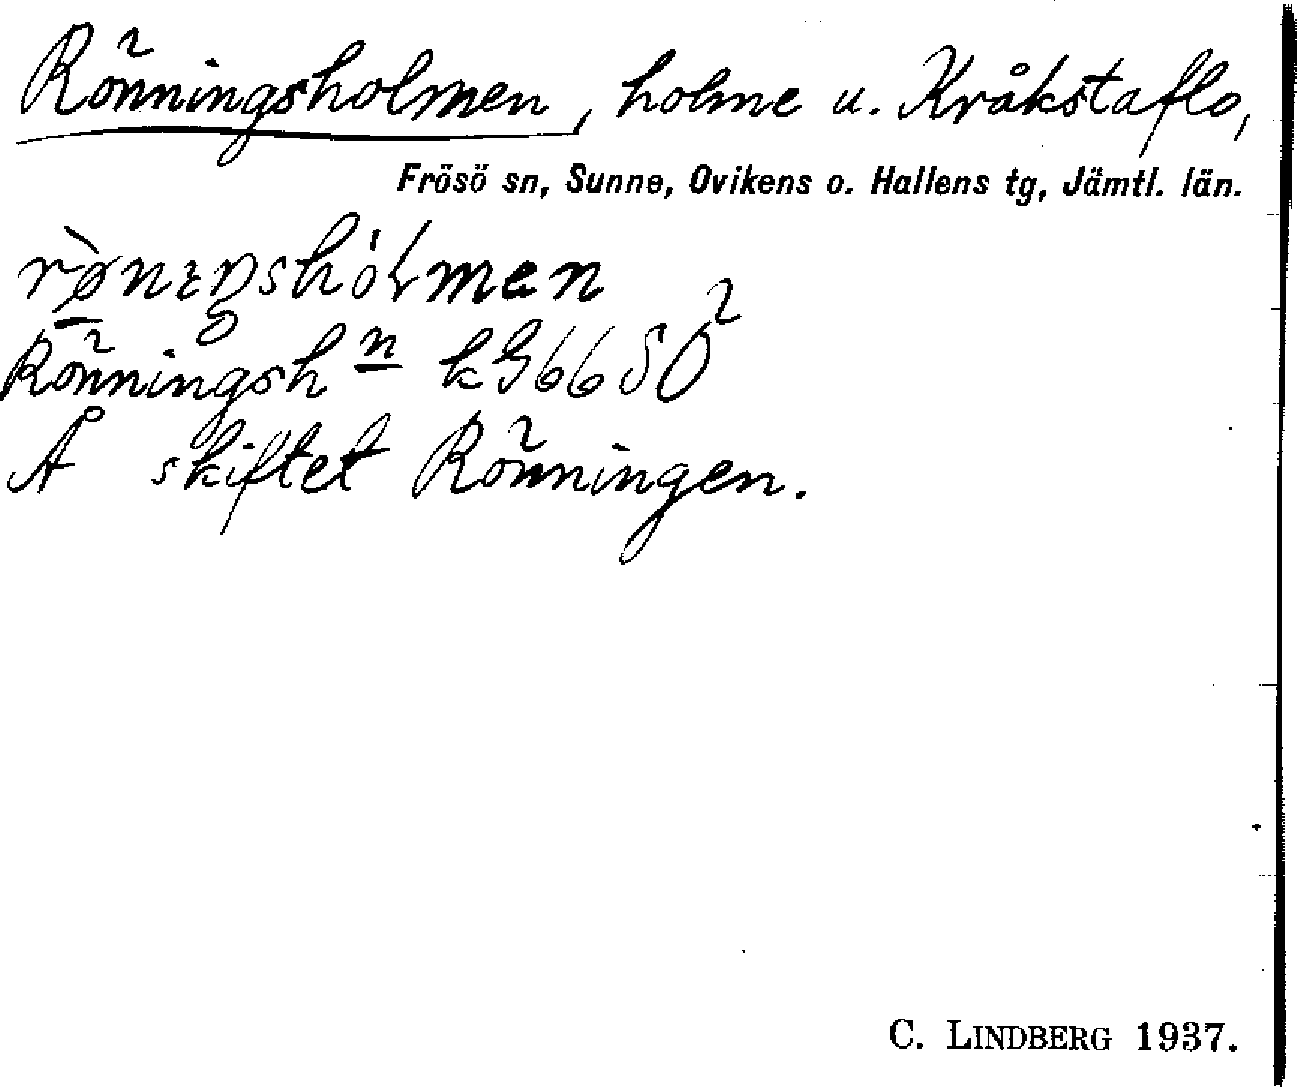 Rönningsholmen, holme u. Kråkstaflo,
Frösö sn, Sunne, Ovikens o. Hallens tg, Jämtl. län.
Rönningsh n k 366 SO
Å skiftet Rönningen.
C. LINDBERG 1937.